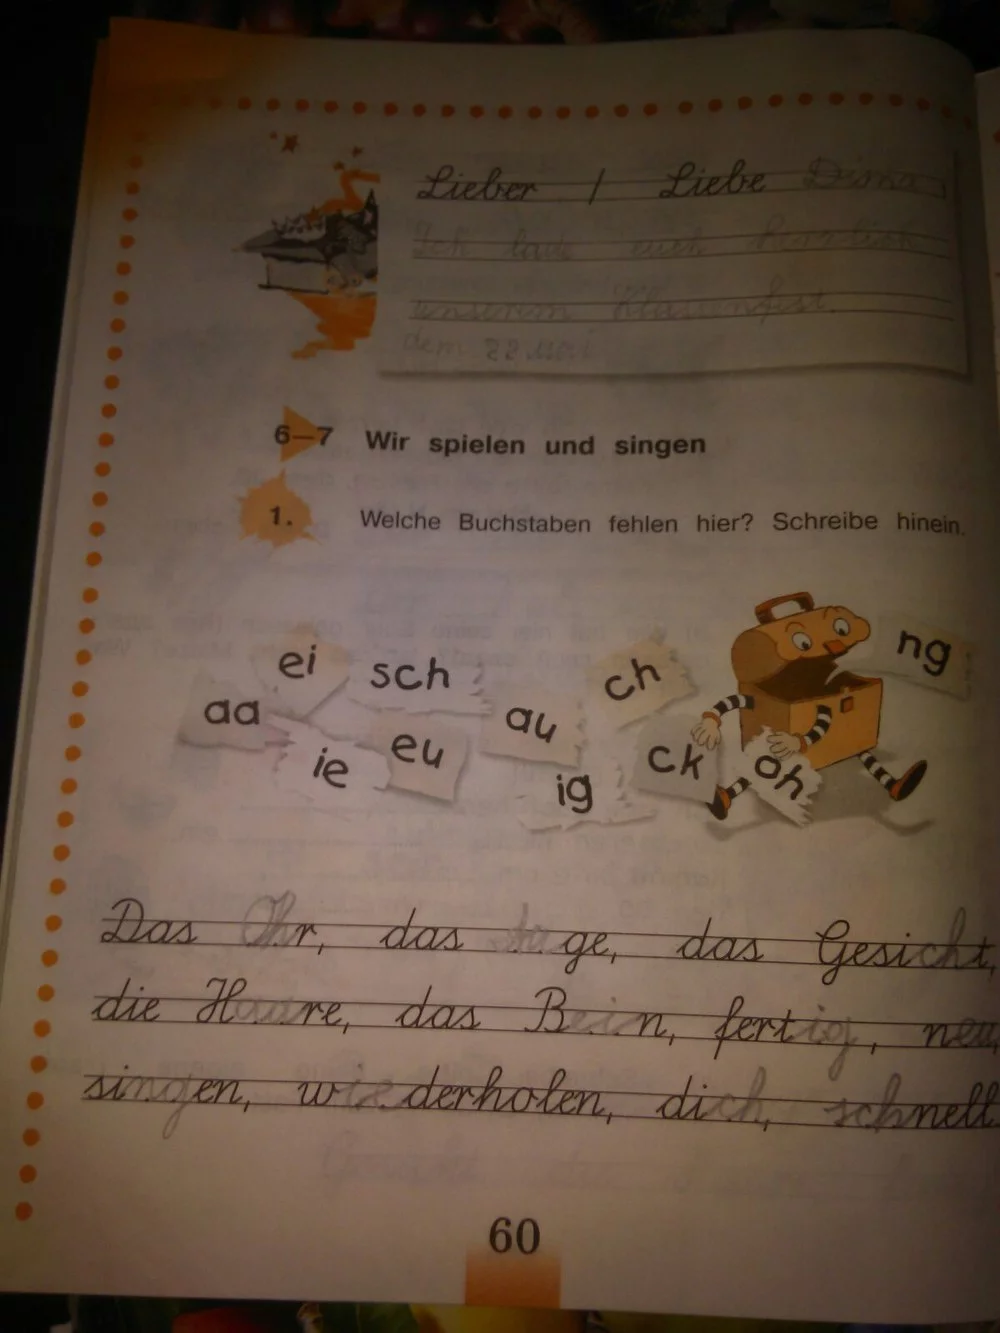 Lieber / Liebe Dima
Ich lade euch herzlich
unserem Klassenfest.
dem 22 Mai
6–7 Wir spielen und singen
1. Welche Buchstaben fehlen hier? Schreibe hinein.
ei sch ch ng
aa au
ie eu ck oh
ig
Das Ohr, das ge, das Gesicht,
die Haare, das Bein, fertig, neu,
singen, wiederholen, dich, schnell.
60